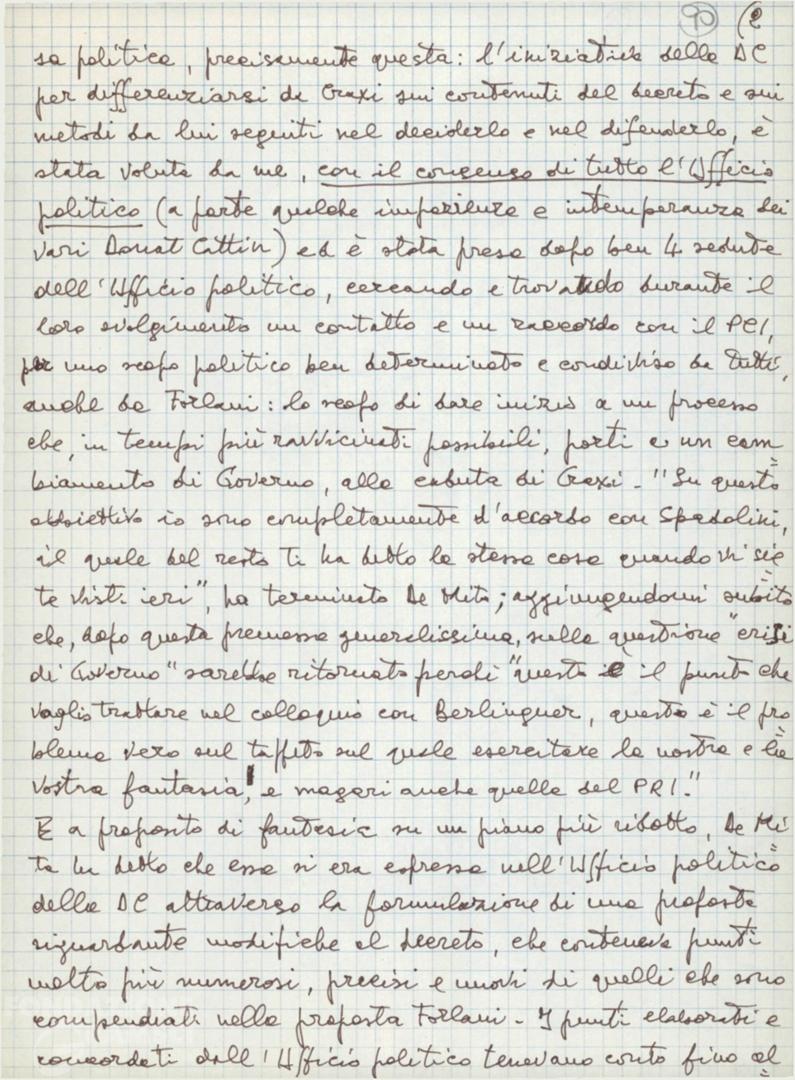 90 (2
sa politica, precisamente questa: l'iniziativa della DC
per differenziarsi da Craxi sui contenuti del decreto e sui
metodi da lui seguiti nel deciderlo e nel difenderlo, è
stata voluta da me, con il consenso di tutto l'Ufficio
politico (a parte qualche impazienza e intemperanza dei
vari Donat Cattin) ed è stata presa dopo ben 4 sedute
dell'Ufficio politico, cercando e trovando durante il
loro svolgimento un contatto e un raccordo con il PCI,
per uno scopo politico ben determinato e condiviso da tutti,
anche da Forlani: lo scopo di dare inizio a un processo
che, in tempi più ravvicinati possibili, porti a un cam=
biamento di Governo, alla caduta di Craxi - "Su questo
obbiettivo io sono completamente d'accordo con Spadolini,
il quale del resto ti ha detto la stessa cosa quando vi sie=
te visti ieri", ha terminato De Mita; aggiungendomi subito
che, dopo questa premessa generalissima, sulla questione "crisi
di Governo" sarebbe ritornato perché "questo è il punto che
voglio trattare nel colloquio con Berlinguer, questo è il pro=
blema vero sul tappeto sul quale esercitare la nostra e la
vostra fantasia, e magari anche quella del PRI."
E a proposito di fantasia su un piano più ridotto, De Mi=
ta ha detto che essa si era espressa nell'Ufficio politico
della DC attraverso la formulazione di una proposta
riguardante modifiche al decreto, che conteneva punti
molto più numerosi, precisi e nuovi di quelli che sono
compendiati nella proposta Forlani - I punti elaborati e
concordati dall'Ufficio politico tenevano conto fino al=